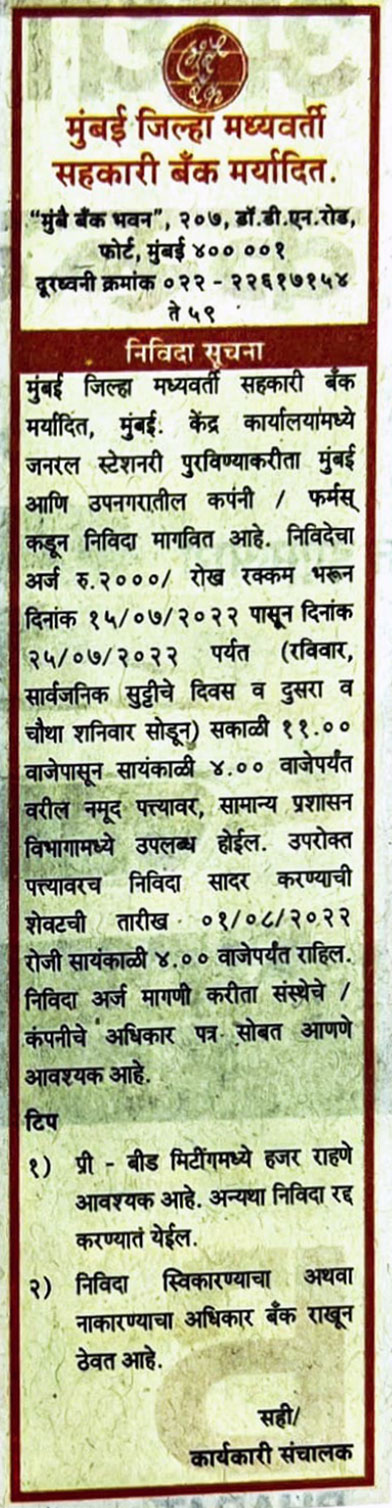 मुंबई जिल्हा मध्यवर्ती
सहकारी बँक मर्यादित.
"मुंबै बँक भवन", २०७, डॉ.डी.एन.रोड,
फोर्ट, मुंबई ४०० ००१
दूरध्वनी क्रमांक ०२२ - २२६१७१५४
ते ५९
निविदा सूचना
मुंबई जिल्हा मध्यवर्ती सहकारी बँक
मर्यादित, मुंबई. केंद्र कार्यालयामध्ये
जनरल स्टेशनरी पुरविण्याकरीता मुंबई
आणि उपनगरातील कपंनी / फर्मस्
कडून निविदा मागवित आहे. निविदेचा
अर्ज रु.२०००/ रोख रक्कम भरून
दिनांक १५/०७/२०२२ पासून दिनांक
२५/०७/२०२२ पर्यंत (रविवार,
सार्वजनिक सुट्टीचे दिवस व दुसरा व
चौथा शनिवार सोडून) सकाळी ११.००
वाजेपासून सायंकाळी ४.०० वाजेपर्यंत
वरील नमूद पत्त्यावर, सामान्य प्रशासन
विभागामध्ये उपलब्ध होईल. उपरोक्त
पत्त्यावरच निविदा सादर करण्याची
शेवटची तारीख ०१/०८/२०२२
रोजी सायंकाळी ४.०० वाजेपर्यंत राहिल.
निविदा अर्ज मागणी करीता संस्थेचे /
कंपनीचे अधिकार पत्र सोबत आणणे
आवश्यक आहे.
टिप
१) प्री - बीड मिटींगमध्ये हजर राहणे
आवश्यक आहे. अन्यथा निविदा रद्द
करण्यातं येईल.
२) निविदा स्विकारण्याचा अथवा
नाकारण्याचा अधिकार बँक राखून
ठेवत आहे.
सही/
कार्यकारी संचालक